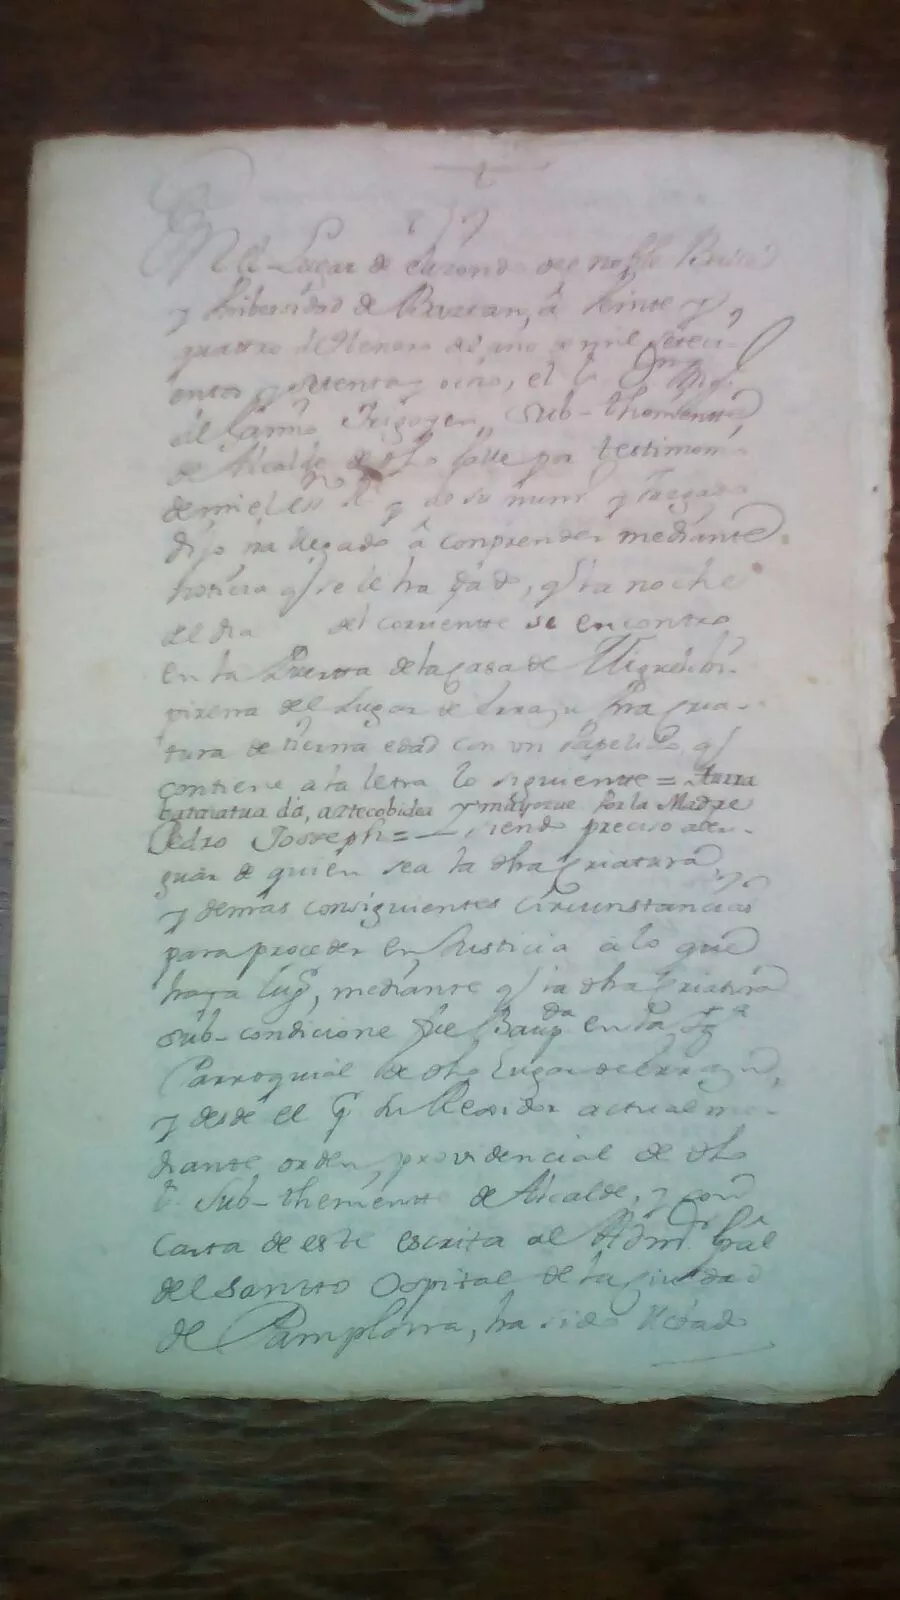 En el Lugar de elizondo del noble Balle
y Unibersidad de Baztan, â Veinte y
quatro de Henero del año de mil seteci-
entos y setenta y ocho, el S.r Dn Mig.l
Sub-thenientte
de Alcalde de dho Valle por testimonio
de mi el ess.no R.l y de su num.o y Juzgado
dijo ha llegado â conprender mediante
noticia q/ se le ha dado, q/ la noche
del dia del corriente se encontro
en la Puerta de la Casa de
del Lugar de Errazu Una Cria-
tura de tierna edad con un papelito, q/
contiene a la letra lo siguientte =
bataiatua da, aztecobidea y mayorue por la Madre
Pedro Joseph = siendo preciso aberi-
guar de quién sea la dha Criatura
y demas consiguientes circunstancias
para proceder en Justicia â lo que
haya lug.r, mediante q/ la dha Criatura
sub-condicione fue Baup.da en la Ig.a
Parroquial de dho Lugar de Errazu,
y desde el q/ su Regidor actual me-
diante orden, providencial de dho
S.r Sub-thenientte de Alcalde, y con
Carta de este escrita al Adm.or G̃ral
del Santto Ospital de la Ciudad
de Pamplona, ha sido llebado